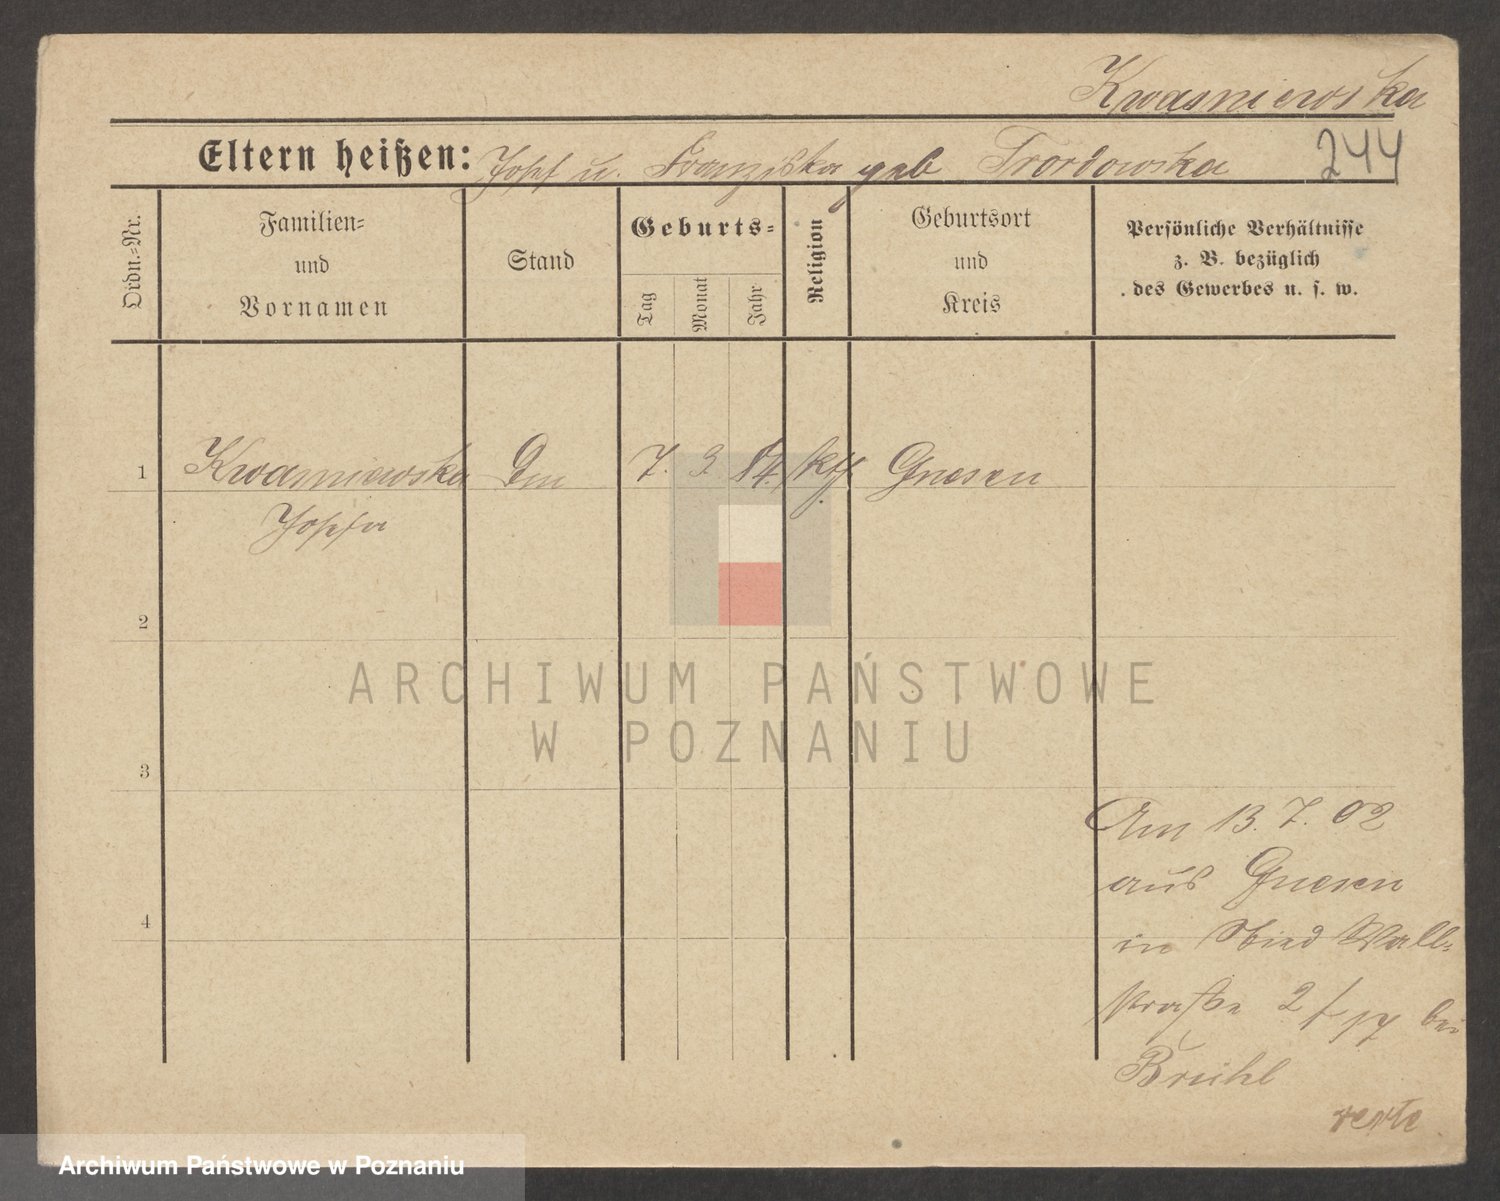 Kwasniewska
Eltern heißen: Josef u. Franziska geb Trordowska
244
Ordn.-Nr.
Familien-
und
Vornamen
Stand
Geburts-
Tag
Monat
Jahr
Religion
Geburtsort
und
Kreis
Persönliche Verhältnisse
z. B. bezüglich
des Gewerbes u. s. w.
1 Kwasniewska 7. 3. 84. kth Gnesen
Josefa
2
3
4
Am 13. 7. 02
aus Gnesen
in Wall-
straße 2 bei
Brühl
verte
ARCHIWUM PAŃSTWOWE
W POZNANIU
Archiwum Państwowe w Poznaniu